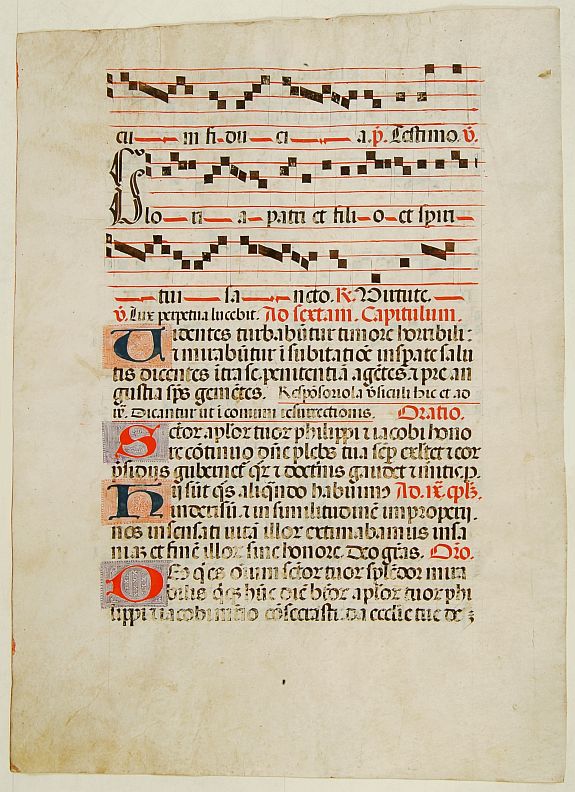 cu in fi du ci a. p̄. Testimo. v̄.
Glo ri a patri et fili o et spiri
tui sa ncto. R. Virtute.
v̄. Lux perpetua lucebit. Ad sextam. Capitulum.
Videntes turbabūtur timore horribili:
⁊ mirabūtur ī subitatiōe insperate salu
tis dicentes ītra se penitentiā agētes. ⁊ pre an
gustia sp̄s gemētes. Respōsoriola v̄siculi hic et ad
ix. Dicantur ut ī comuni resurrectionis. Oratio.
Sctōr aplōr tuor philippi ⁊ iacobi hono
re cōtinuo dn̄e plebs tua sep̄ exltet ⁊ eor
Hij sūt q̄s aliqn̄do habuimꝰ Ad. ix. cp̄lm.
inderisū. ⁊ in similitudinē improperij.
nos insensati vitā illor extimabamus insa
niaꝫ et finē illor sine honore. Deo grās. Oro.
Deꝰ q̄ es oīum sctōr tuor splēdor mira
bilis q̄ꝫ hūc diē btōr aplōr tuor phi
lippi ⁊ iacobi mrīo cōsecrasti. da ecclie tue de